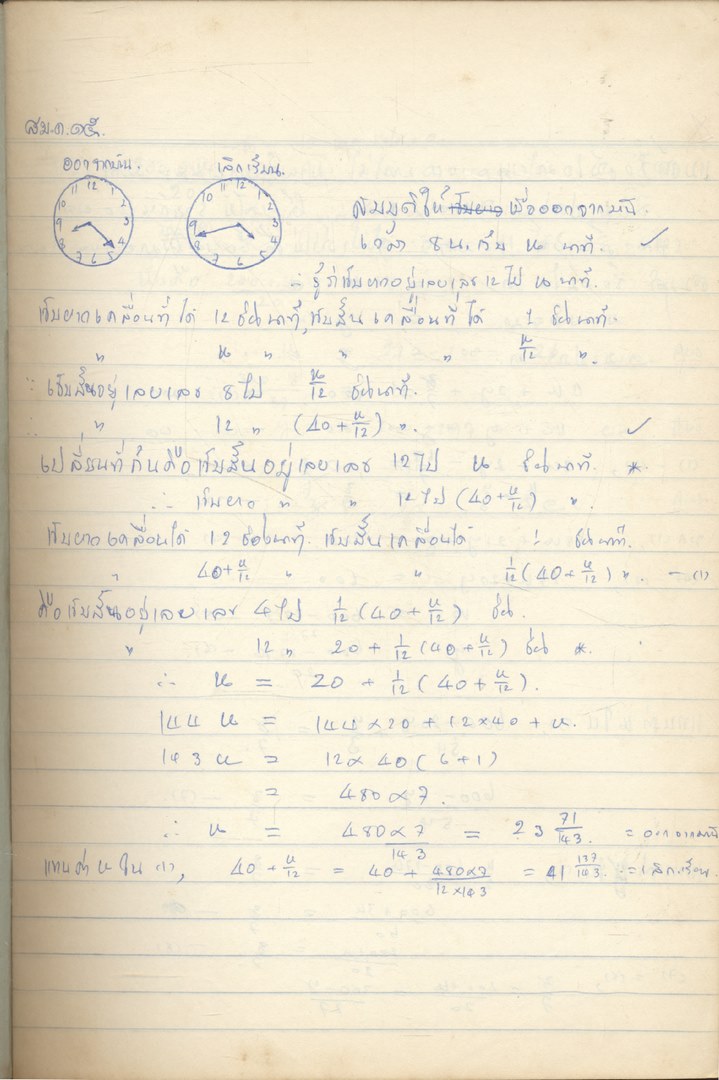 ส.ม.ค.๑๕.
ออกจากบ้าน. เลิกเรียน.
12 1 2 3 4 5 6 7 8 9 10 11
12 1 2 3 4 5 6 7 8 9 10 11
สมมุติให้ เมื่อออกจากบ้าน.
เวลา 8 น. กับ น นาที. ✓
∴ รู้ว่าเข็มยาวอยู่เลยเลข 12 ไป น นาที.
เข็มยาวเคลื่อนที่ได้ 12 ช่องนาที, เข็มสั้นเคลื่อนที่ได้ 1 ช่องนาที.
" น " " " น/12 ".
∵ เข็มสั้นอยู่เลยเลข 8 ไป น/12 ช่องนาที.
∴ " 12 " (40 + น/12) ". ✓
เปลี่ยนที่กันคือเข็มสั้นอยู่เลยเลข 12 ไป น ช่องนาที. *.
∴ เข็มยาว " " 12 ไป (40 + น/12) ".
เข็มยาวเคลื่อนได้ 12 ช่องนาที. เข็มสั้นเคลื่อนได้ 1 ช่องนาที.
" 40 + น/12 " " 1/12 (40 + น/12) ". — (1)
คือเข็มสั้นอยู่เลยเลข 4 ไป 1/12 (40 + น/12) ช่อง.
" 12 " 20 + 1/12 (40 + น/12) ช่อง *.
∴ น = 20 + 1/12 (40 + น/12).
144 น = 144 × 20 + 12 × 40 + น.
143 น = 12 × 40 (6 + 1)
= 480 × 7.
∴ น = 480 × 7 / 143 = 23 71/143. = ออกจากบ้าน
แทนค่า น ใน (1), 40 + น/12 = 40 + 480 × 7 / 12 × 143 = 41 137/143. = เลิกเรียน.